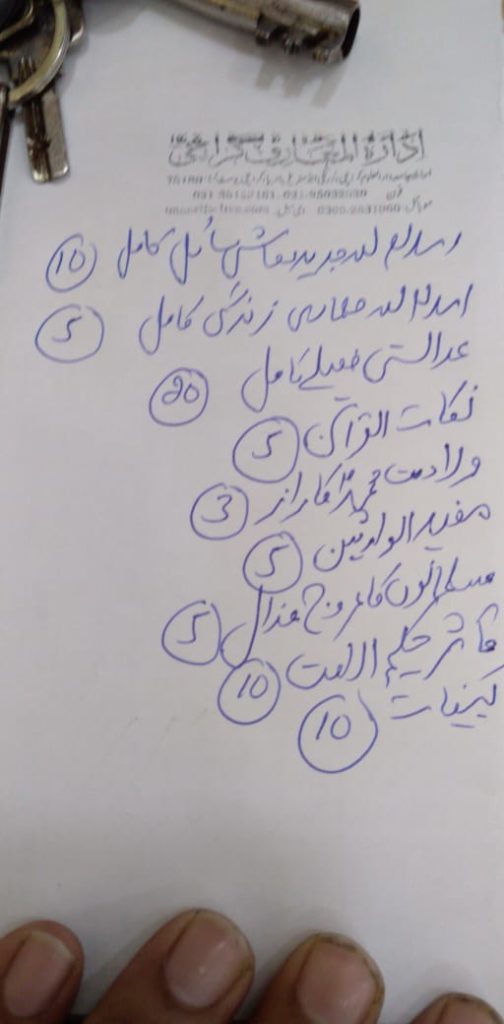 ادارۃ المعارف کراچی
اسلام اور جدید معاشی مسائل کامل 10
اسلام اور ہماری زندگی کامل 5
عدالتی فیصلے کامل 20
نکات القرآن 5
ولادت محمدؐ کا راز 3
مفید الوارثین 5
مسلمانوں کا عروج و زوال 5
مآثر حکیم الامت 10
کیفیات 10